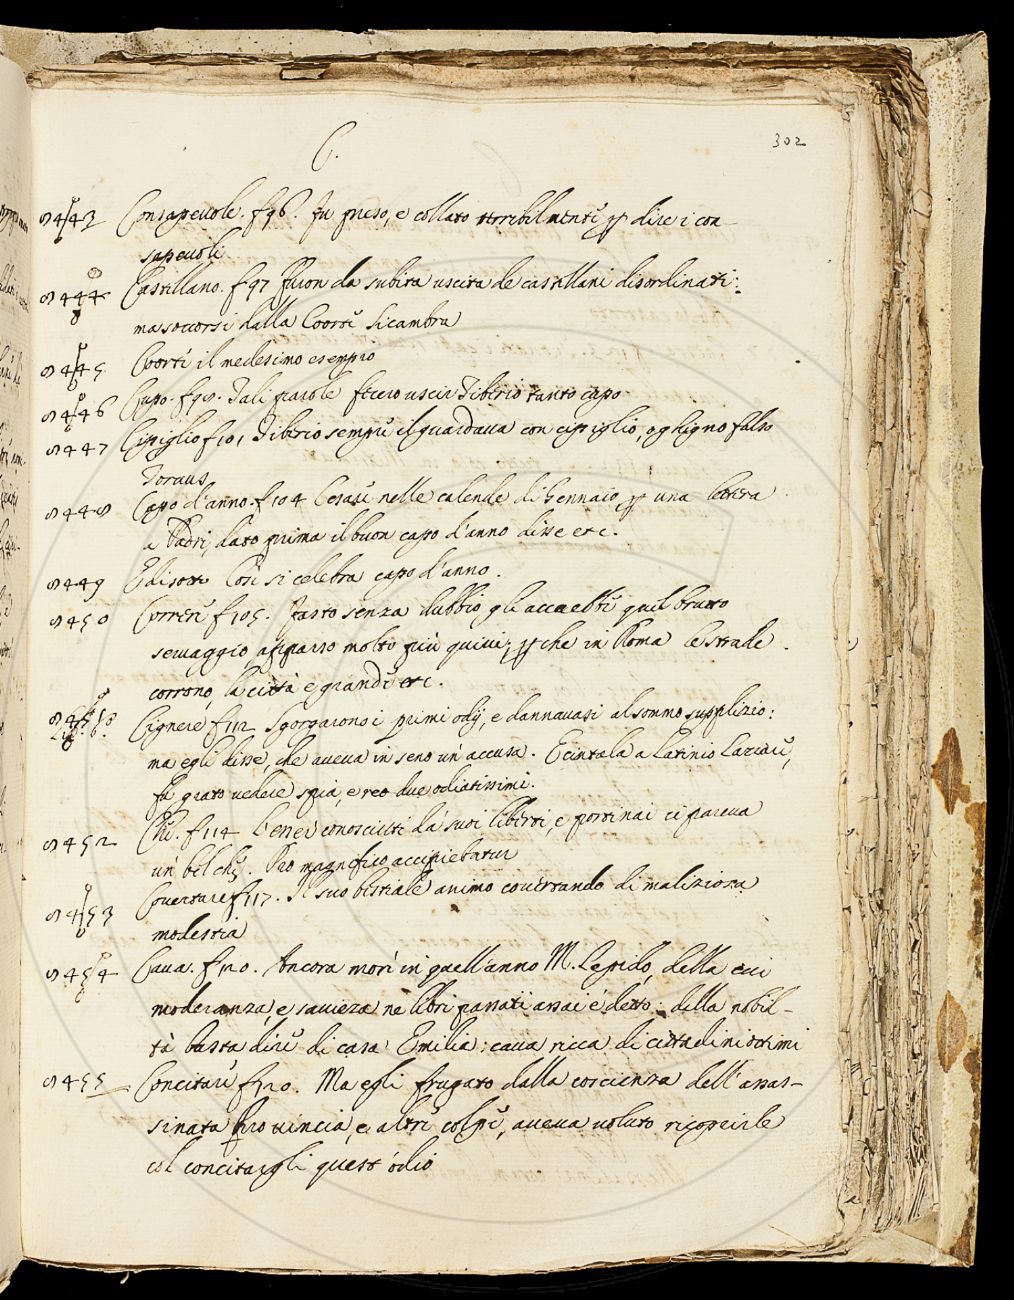 302
C.
9443 Consapevole. f 96. Fu preso, e collato terribilmente p dire i con-
sapevoli
9444 Castellano. f 97 Furon da subita uscita de castellani disordinati:
ma soccorsi dalla Coorte Sicambra
9445 Coorte il medesimo esempio
9446 Capo. f 98. Tali parole fecero uscir Tiberio tanto capo
9447 Cipiglio f 101 Tiberio sempre il guardava con cipiglio, o ghigno falso
Torvus
9448 Capo d'anno. f 104 Cesare nelle calende di Gennaio p una lettera
a Padri, dato prima il buon capo d'anno disse etc.
9449 E di sotto Così si celebra capo d'anno.
9450 Correre f 105. Fatto senza dubbio gli accaebbe quel brutto
selvaggio, apparso molto più quivi, p che in Roma le strade
corrono, la città e grande etc.
9451 Cignere f 112 Sgorgarono i primi odij, e dannavasi al sommo supplizio:
ma egli disse, che aveva in seno un' accusa. E cintala a Latinio Laziare,
fu grato vedere spia, e reo due odiatissimi.
9452 Che. f 114 L'esser conosciuti da suoi liberti, e portinai ci pareva
un bel che. Pro magnifico accipiebatur
9453 Covertare f 117. Il suo bestiale animo covertando di maliziosa
modestia
9454 Cava. f 120. Ancora morì in quell'anno M. Lepido, della cui
moderanza, e saviezza ne libri passati assai è detto: della nobil-
tà basta dire di casa Emilia: cava ricca di cittadini ottimi
9455 Concitare f 120. Ma egli frugato dalla coscienza dell'assas-
sinata Provincia, e altre colpe, aveva voluto ricoprirle
col concitargli quest'odio